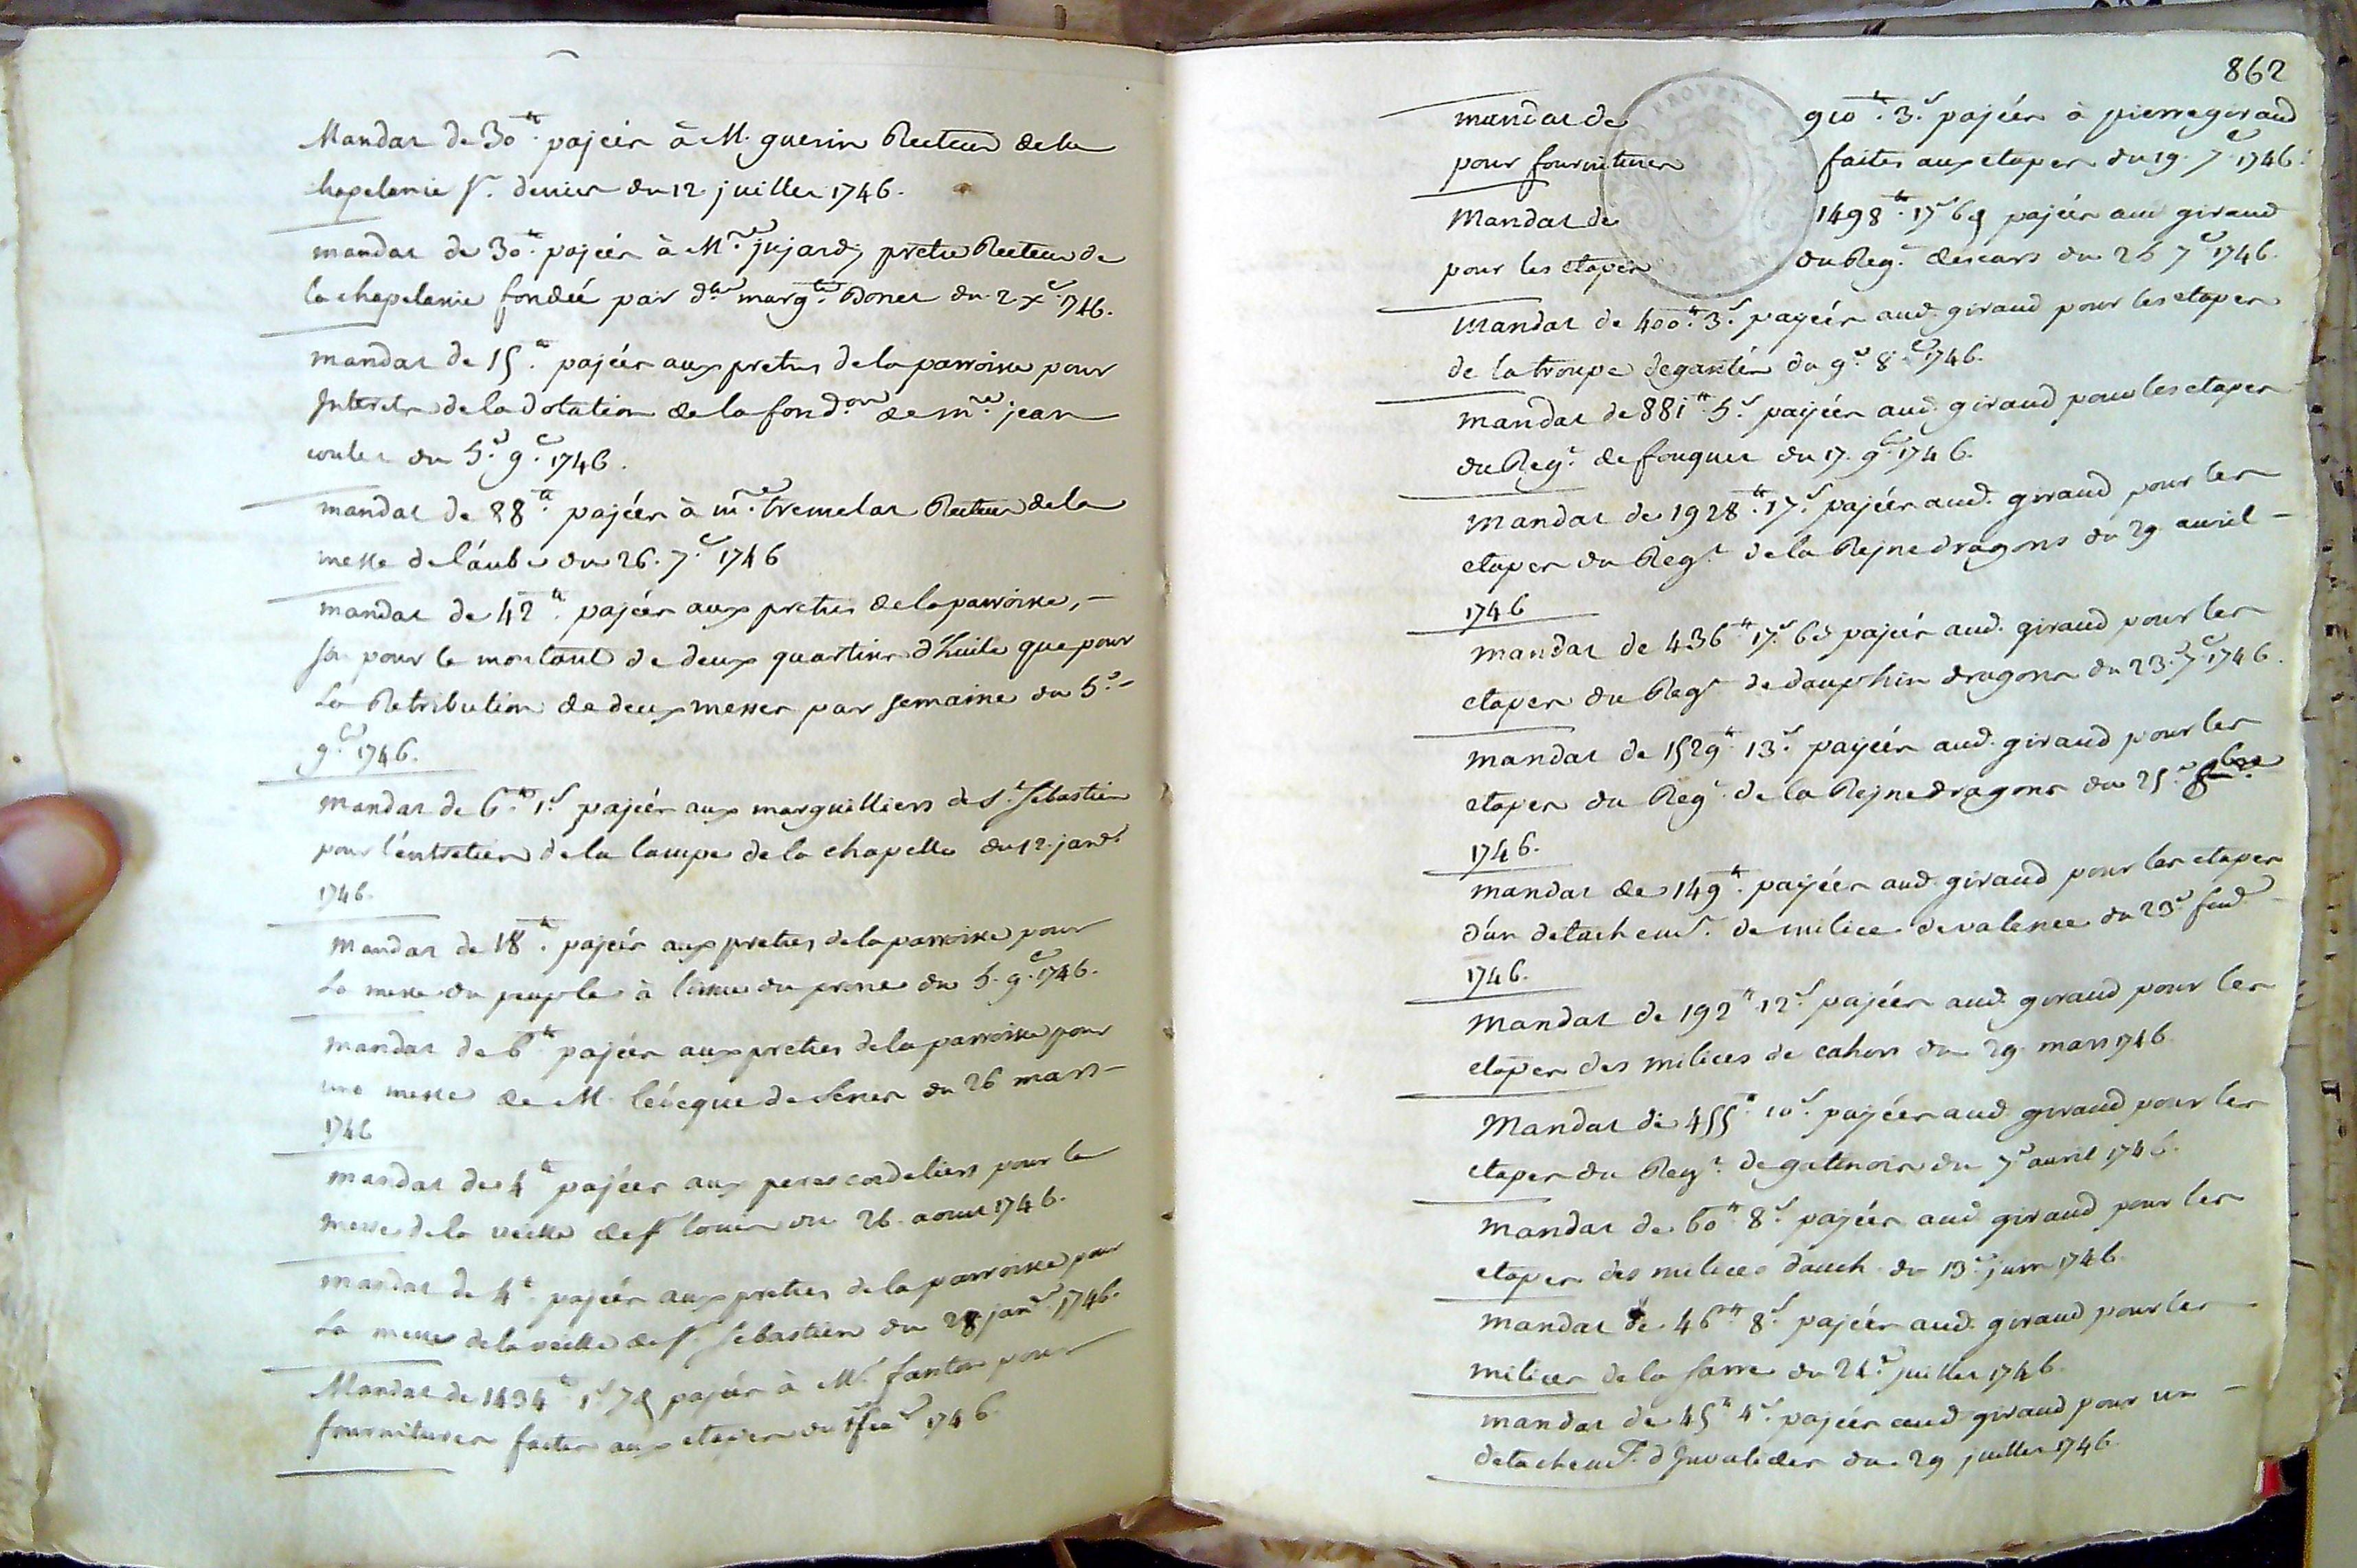 Mandat de 30ᵗᵗ. pajées à M. guerin Recteur de la
hapelanie Sᵗ. denier du 12 juillet 1746.
mandat de 30ᵗᵗ. pajées à Mʳᵉ. jujardy pretre Recteur de
la chapelanie fondée par dˡˡᵉ margᵗᵉ. Bonet du 2 xᵉ. 1746.
mandat de 15ᵗᵗ. pajées aux pretres de la parroisse pour
Interets de la dotation de la fondᵒⁿ de mʳᵉ. jean
coulet du 5ᵉ. 9ᵉ. 1746.
mandat de 88ᵗᵗ. pajées à mʳᵉ. tremelat Recteur de la
messe de l'aube du 26. 7ᵉ. 1746
mandat de 42ᵗᵗ. pajées aux pretres de la parroisse, -
sa pour le montant de deux quartins d'huile que pour
La Retribution de deux messes par semaine du 5ᵉ. -
9ᵉ. 1746.
mandat de 6ᵗᵗ. 1ˢ. pajées aux marguilliers de Sᵗ. Sebastien
pour l'entretien de la lampe de la chapelle du 12. janᵛ.
1746.
Mandat de 18ᵗᵗ. pajées aux pretres de la parroisse pour
La messe du peuple à l'issue du prone du 5. 9ᵉ. 1746.
mandat de 6ᵗᵗ pajées aux pretres de la parroisse pour
une messe de M. l'évêque de Senes du 26 mars -
1746
mandat de 4ᵗᵗ pajées aux peres cordeliers pour la
messe de la veille de Sᵗ Louis du 26. aout 1746.
mandat de 4ᵗᵗ. pajées aux pretres de la parroisse pour
La messe de la veille de Sᵗ. Sebastien du 28 janᵛ. 1746.
Mandat de 1434ᵗᵗ 1ˢ 7d pajées à Mʳ. fanton pour
fournitures faites aux etapes du feuᵛ 1746
862
mandat de 910ᵗᵗ. 3ˢ. pajées à pierre giraud
pour fournitures faites aux etapes du 19. 7ᵉ. 1746.
PROVENCE
Mandat de 1498ᵗᵗ. 17ˢ 6d pajées aud giraud
pour les etapes du Regᵗ. descars du 26 7ᵉ. 1746.
Mandat de 400ᵗᵗ. 3ˢ. payées aud. giraud pour les etapes
de la troupe degantés du 9ᵉ. 8ᵉ. 1746.
mandat de 881ᵗᵗ. 5ˢ. payées aud. giraud pour les etapes
du Regᵗ. de fouquet du 17. 9ᵉ. 1746.
mandat de 1928ᵗᵗ. 17ˢ. pajées aud. giraud pour les
etapes du Regᵗ de la Rejne dragons du 29 auril -
1746
mandat de 436ᵗᵗ 17ˢ. 6d pajées aud. giraud pour les
etapes du Regᵗ de dauphin dragons du 23ᵉ. 7ᵉ. 1746.
mandat de 1529ᵗᵗ. 13ˢ. payées aud. giraud pour les
etapes du Regᵗ. de la Rejne dragons du 25ᵉ.
1746.
mandat de 149ᵗᵗ. payées aud. giraud pour les etapes
d'un detachemᵗ. de milice de valence du 23ᵉ feuᵛ
1746.
Mandat de 192ᵗᵗ. 12ˢ. pajées aud. giraud pour les
etapes des milices de cahors du 29. mars 1746
Mandat de 455ᵗᵗ. 10ˢ. payées aud giraud pour les
etapes du Regᵗ. de gatinois du 7ᵉ auril 1746.
mandat de 60ᵗᵗ. 8ˢ. pajées aud giraud pour les
etapes des milices dauch. du 13ᵉ. juin 1746
mandat de 46ᵗᵗ 8ˢ. pajées aud. giraud pour les
milices de la Sarre du 24ᵉ. juillet 1746.
mandat de 45ᵗᵗ 4ˢ. pajées aud giraud pour un -
detachemᵗ. d'Invalides du 29 juillet 1746